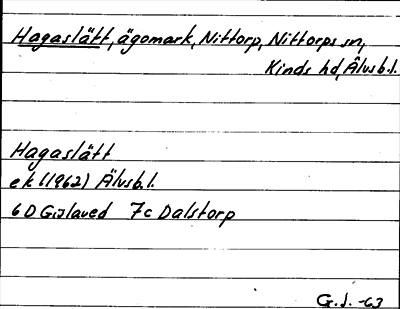 Hagaslätt, ägomark, Nittorp, Nittorps sn,
Kinds hd, Älvsb.l.
Hagaslätt
ek (1962) Älvsb.l.
6D Gislaved 7c Dalstorp
G.J. -63